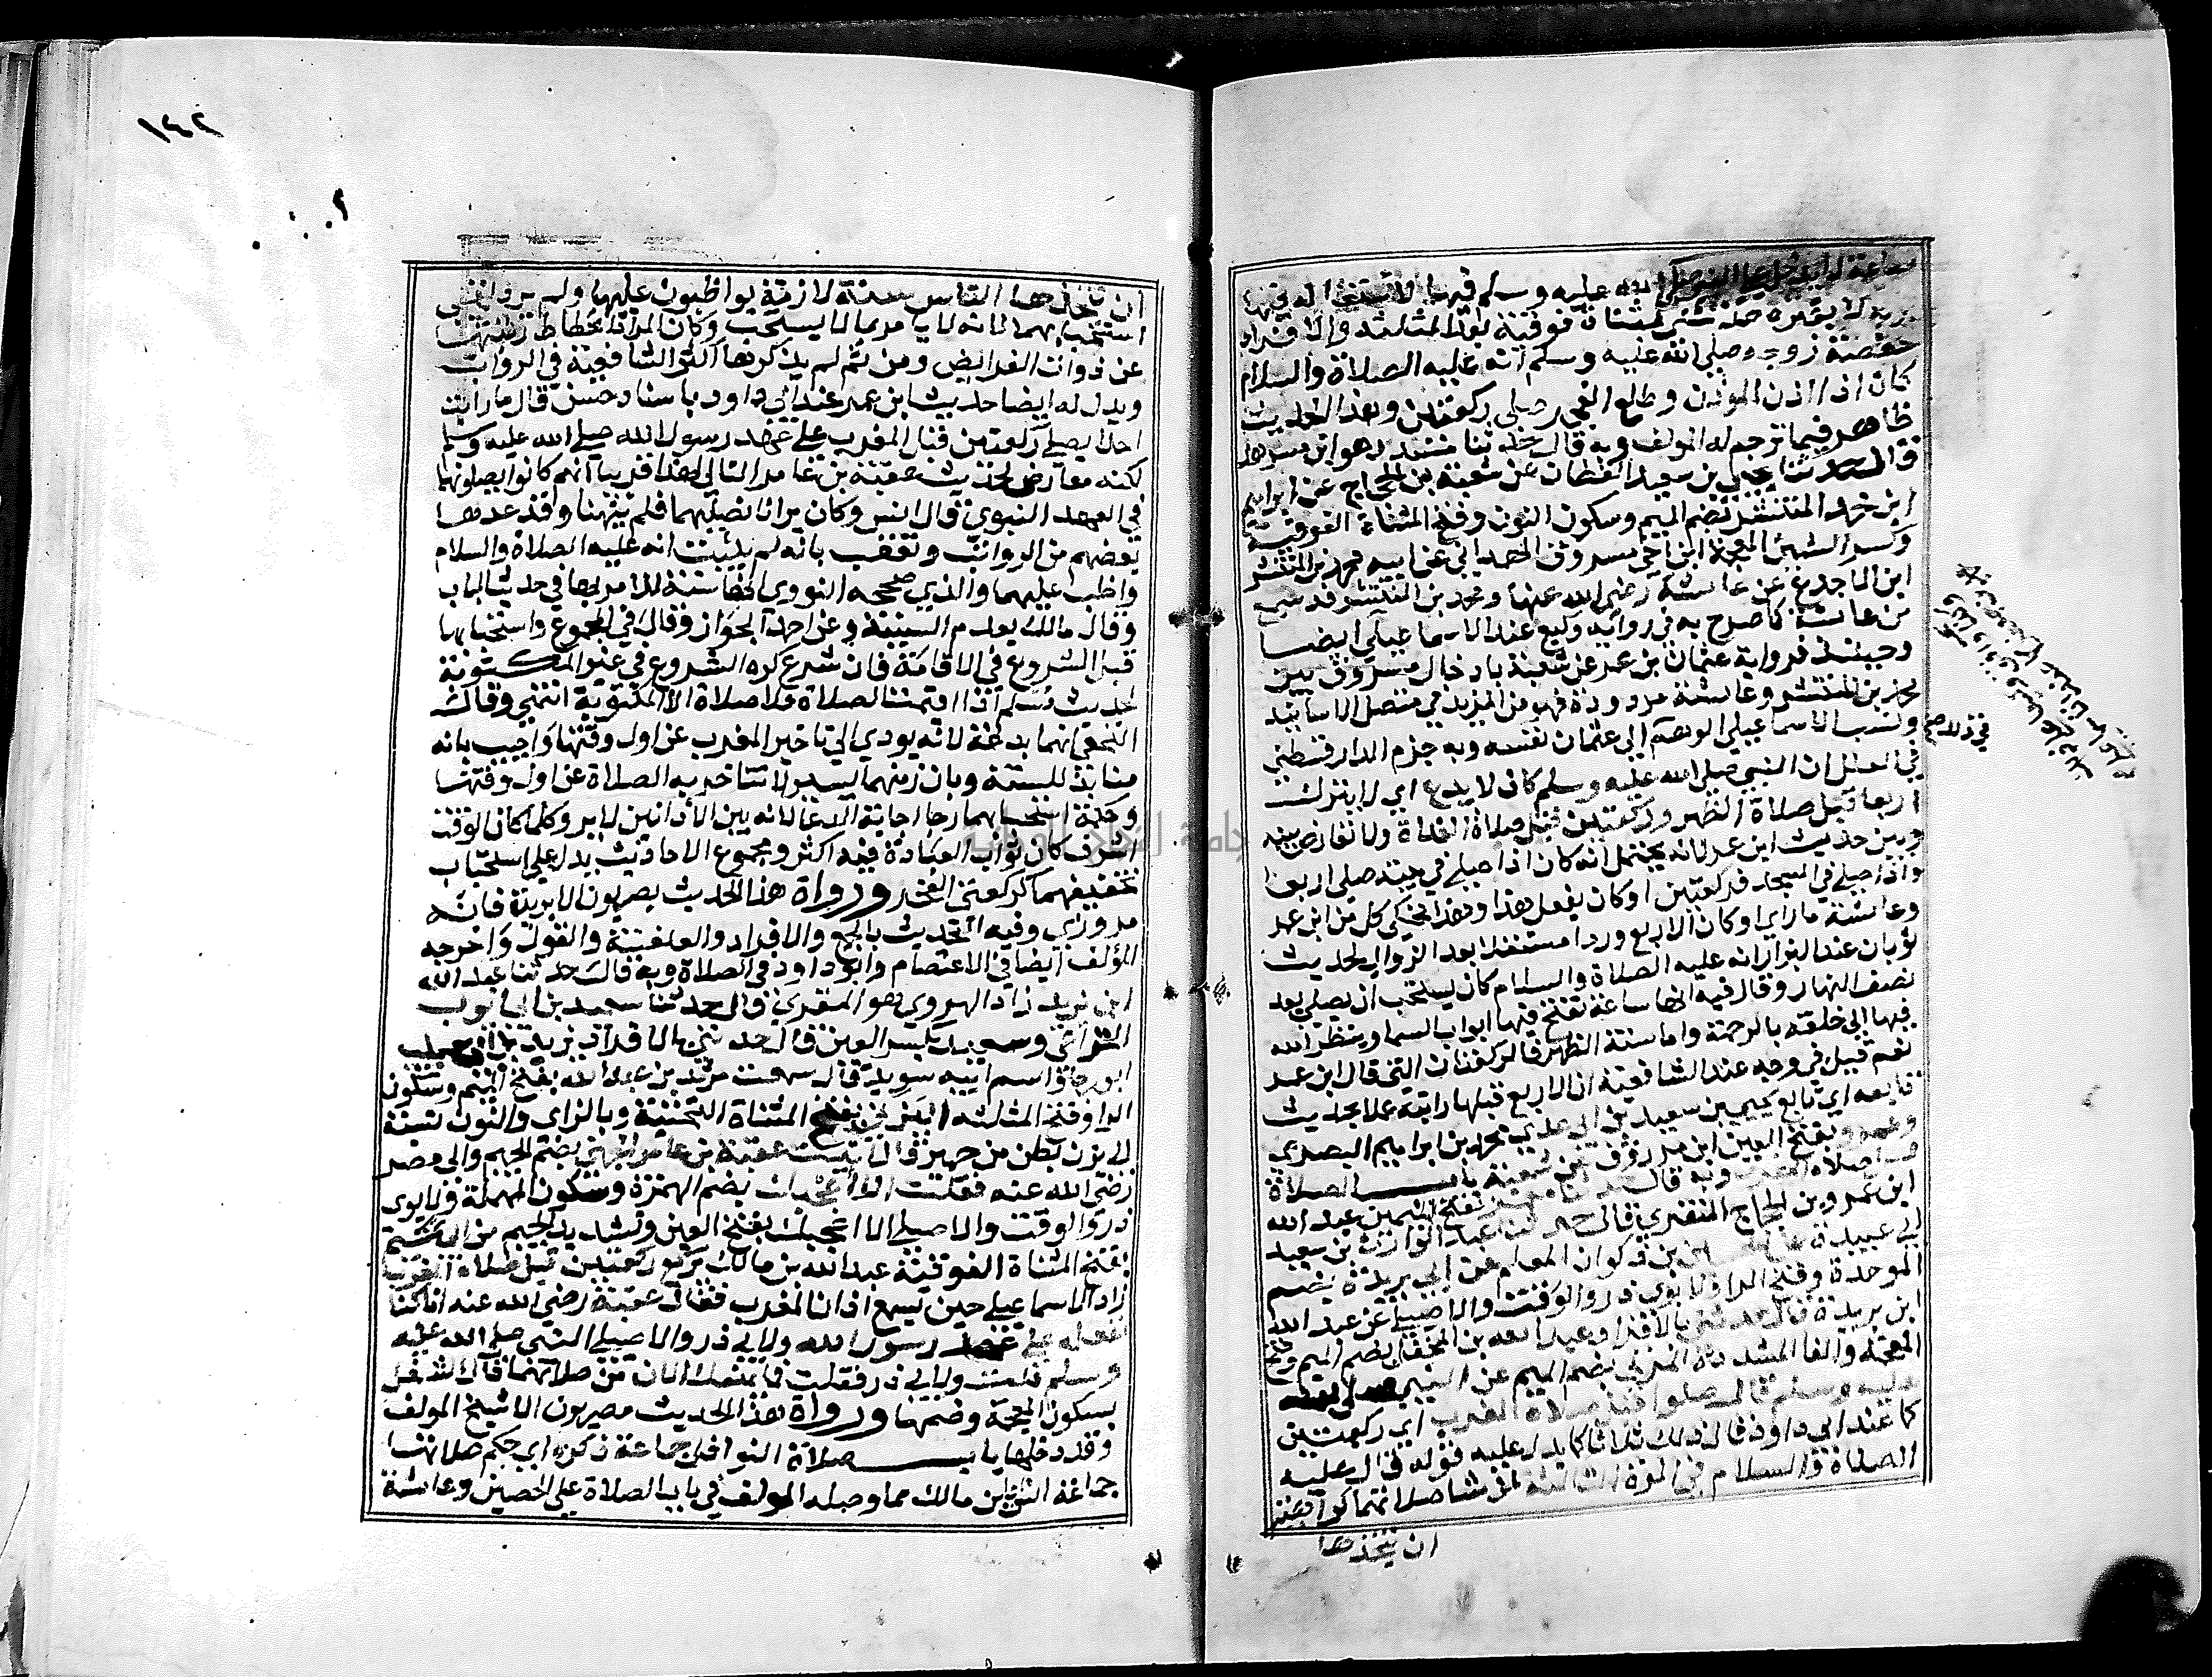 ساعة لا يدخل على النبي صلى الله عليه وسلم فيها لاشتغاله فيها
بربه لا بغيره حدثتني بمثناة فوقية بعد المثلثة والافراد
حفصة زوجه صلى الله عليه وسلم انه عليه الصلاة والسلام
كان اذا اذن الموذن وطلع الفجر صلى ركعتين وهذا الحديث
ظاهر فيما ترجم له المولف وبه قال حدثنا مسدد هو ابن مسرهد
قال حدثنا يحيي بن سعيد القطان عن شعبة بن الحجاج عن ابراهيم
ابن محمد المنتشر بضم الميم وسكون النون وفتح المثناة الفوقية
وكسر الشين المعجمة ابن اخي مسروق الهمداني عن ابيه محمد بن المنتشر
ابن الاجدع عن عايشة رضي الله عنها ومحمد بن المنتشر قد سمع
من عايشة كما صرح به في رواية وكيع عند الاسماعيلي ايضا
وحينئذ فرواية عثمان بن عمر عن شعبة بادخال مسروق بين
محمد بن المنتشر وعايشة مردودة فهو من المزيد في متصل الاسانيد
ونسب الاسماعيلي الوهم الي عثمان نفسه وبه جزم الدارقطني
في ذلك صح
في العلل ان النبي صلى الله عليه وسلم كان لا يدع اي لا يترك
اربعا قبل صلاة الظهر وركعتين قبل صلاة الغداة ولا تعارض بينه
وبين حديث ابن عمر لانه يحتمل انه كان اذا صلى في بيته صلى اربعا
واذا صلى في المسجد فركعتين او كان يفعل هذا وهذا فحكي كل من ابن عمر
وعايشة ما راي او كان الاربع وردا مستقلا بعد الزوال لحديث
ثوبان عند البزار انه عليه الصلاة والسلام كان يستحب ان يصلي بعد
نصف النهار وقال فيه انها ساعة تفتح فيها ابواب السما وينظر الله
فيها الى خلقه بالرحمة واما سنة الظهر فالركعتان التي قال ابن عمر
نعم قيل في وجه عند الشافعية ان الاربع قبلها راتبة عملا بحديث
تابعه اي تابع يحيى بن سعيد ابن ابي عدي محمد بن ابراهيم البصري
وعمرو بفتح العين ابن مرزوق عن شعبة باب الصلاة
قبل صلاة المغرب وبه قال حدثنا ابو معمر بفتح الميمين عبد الله
ابن عمرو بن الحجاج المنقري قال حدثنا عبد الوارث بن سعيد
ابي عبيدة عن الحسين بن ذكوان المعلم عن ابن بريدة بضم
الموحدة وفتح الرا ولابوي ذر والوقت والاصيلي عن عبد الله
ابن بريدة قال حدثني بالافراد عبد الله بن المغفل بضم الميم وفتح
المعجمة والفا المشددة المزني بضم الميم عن النبي صلى الله
عليه وسلم قال صلوا قبل صلاة المغرب اي ركعتين
كما عند ابي داود قال ذلك ثلاثا كما يدل عليه قوله قال عليه
الصلاة والسلام في المرة الثالثة لمن شا صلاتهما كراهية
ان يتخذها
١٤٢
ان يتخذها الناس سنة لازمة يواظبون عليها ولم يرد نفي
استحبابهما لانه لا يامر بما لا يستحب وكان المراد انحطاط رتبتهما
عن ذوات الفرايض ومن ثم لم يذكرها اكثر الشافعية في الرواتب
ويدل له ايضا حديث ابن عمر عند ابي داود باسناد حسن قال ما رايت
احدا يصلي ركعتين قبل المغرب على عهد رسول الله صلى الله عليه وسلم
لكنه معارض لحديث عقبة بن عامر التالي لهذا قريبا انهم كانوا يصلونهما
في العهد النبوي قال انس وكان يرانا نصليهما فلم ينهنا وقد عدهما
بعضهم من الرواتب وتعقب بانه لم يثبت انه عليه الصلاة والسلام
واظب عليهما والذي صححه النووي انها سنة للامر بها في حديث الباب
وقال مالك بعدم السنية وعن احمد الجواز وقال في المجموع واستحبابها
قبل الشروع في الاقامة فان شرع كره الشروع في غير المكتوبة
لحديث مسلم اذا اقيمت الصلاة فلا صلاة الا المكتوبة انتهي وقال
النخعي انهما بدعة لانه يودي الي تاخير المغرب عن اول وقتها واجيب بانه
منابذ للسنة وبان زمنهما يسير لا تتاخر به الصلاة عن اول وقتها
وحكمة استحبابهما رجا اجابة الدعا لانه بين الاذانين لا يرد وكلما كان الوقت
اشرف كان ثواب العبادة فيه اكثر ومجموع الاحاديث يدل علي استحباب
تخفيفهما كركعتي الفجر ورواة هذا الحديث بصريون الا بريدة فانه
مروزي وفيه التحديث بالجمع والافراد والعنعنة والقول واخرجه
المؤلف ايضا في الاعتصام وابو داود في الصلاة وبه قال حدثنا عبد الله
ابن يزيد زاد الهروي هو المقري قال حدثنا سعيد بن ابي ايوب
وسعيد بكسر العين قال حدثني بالافراد يزيد بن ابي حبيب
ابو رجا واسم ابيه سويد قال سمعت مرثد بن عبد الله بفتح الميم وسكون
الرا وفتح المثلثة اليزني بفتح المثناة التحتية وبالزاي والنون نسبة
الى يزن بطن من حمير قال اتيت عقبة بن عامر الجهني بضم الجيم والي مصر
رضي الله عنه فقلت الا اعجبك بضم الهمزة وسكون المهملة ولابوي
ذر والوقت والاصيلي الا اعجبك بفتح العين وتشديد الجيم من ابي تميم
بفتح المثناة الفوقية عبد الله بن مالك يركع ركعتين قبل صلاة المغرب
زاد الاسماعيلي حين يسمع اذان المغرب فقال عقبة رضي الله عنه انا كنا
نفعله على عهد رسول الله ولابي ذر والاصيلي النبي صلى الله عليه
وسلم قلت ولابي ذر فقلت فما يمنعك الان من صلاتهما قال الشغل
بسكون المعجمة وضمها ورواة هذا الحديث مصريون الا شيخ المولف
وقد دخلها باب صلاة النوافل جماعة ذكره اي حكم صلاتها
جماعة انس ابن مالك مما وصله المولف في باب الصلاة علي الحصير وعايشة